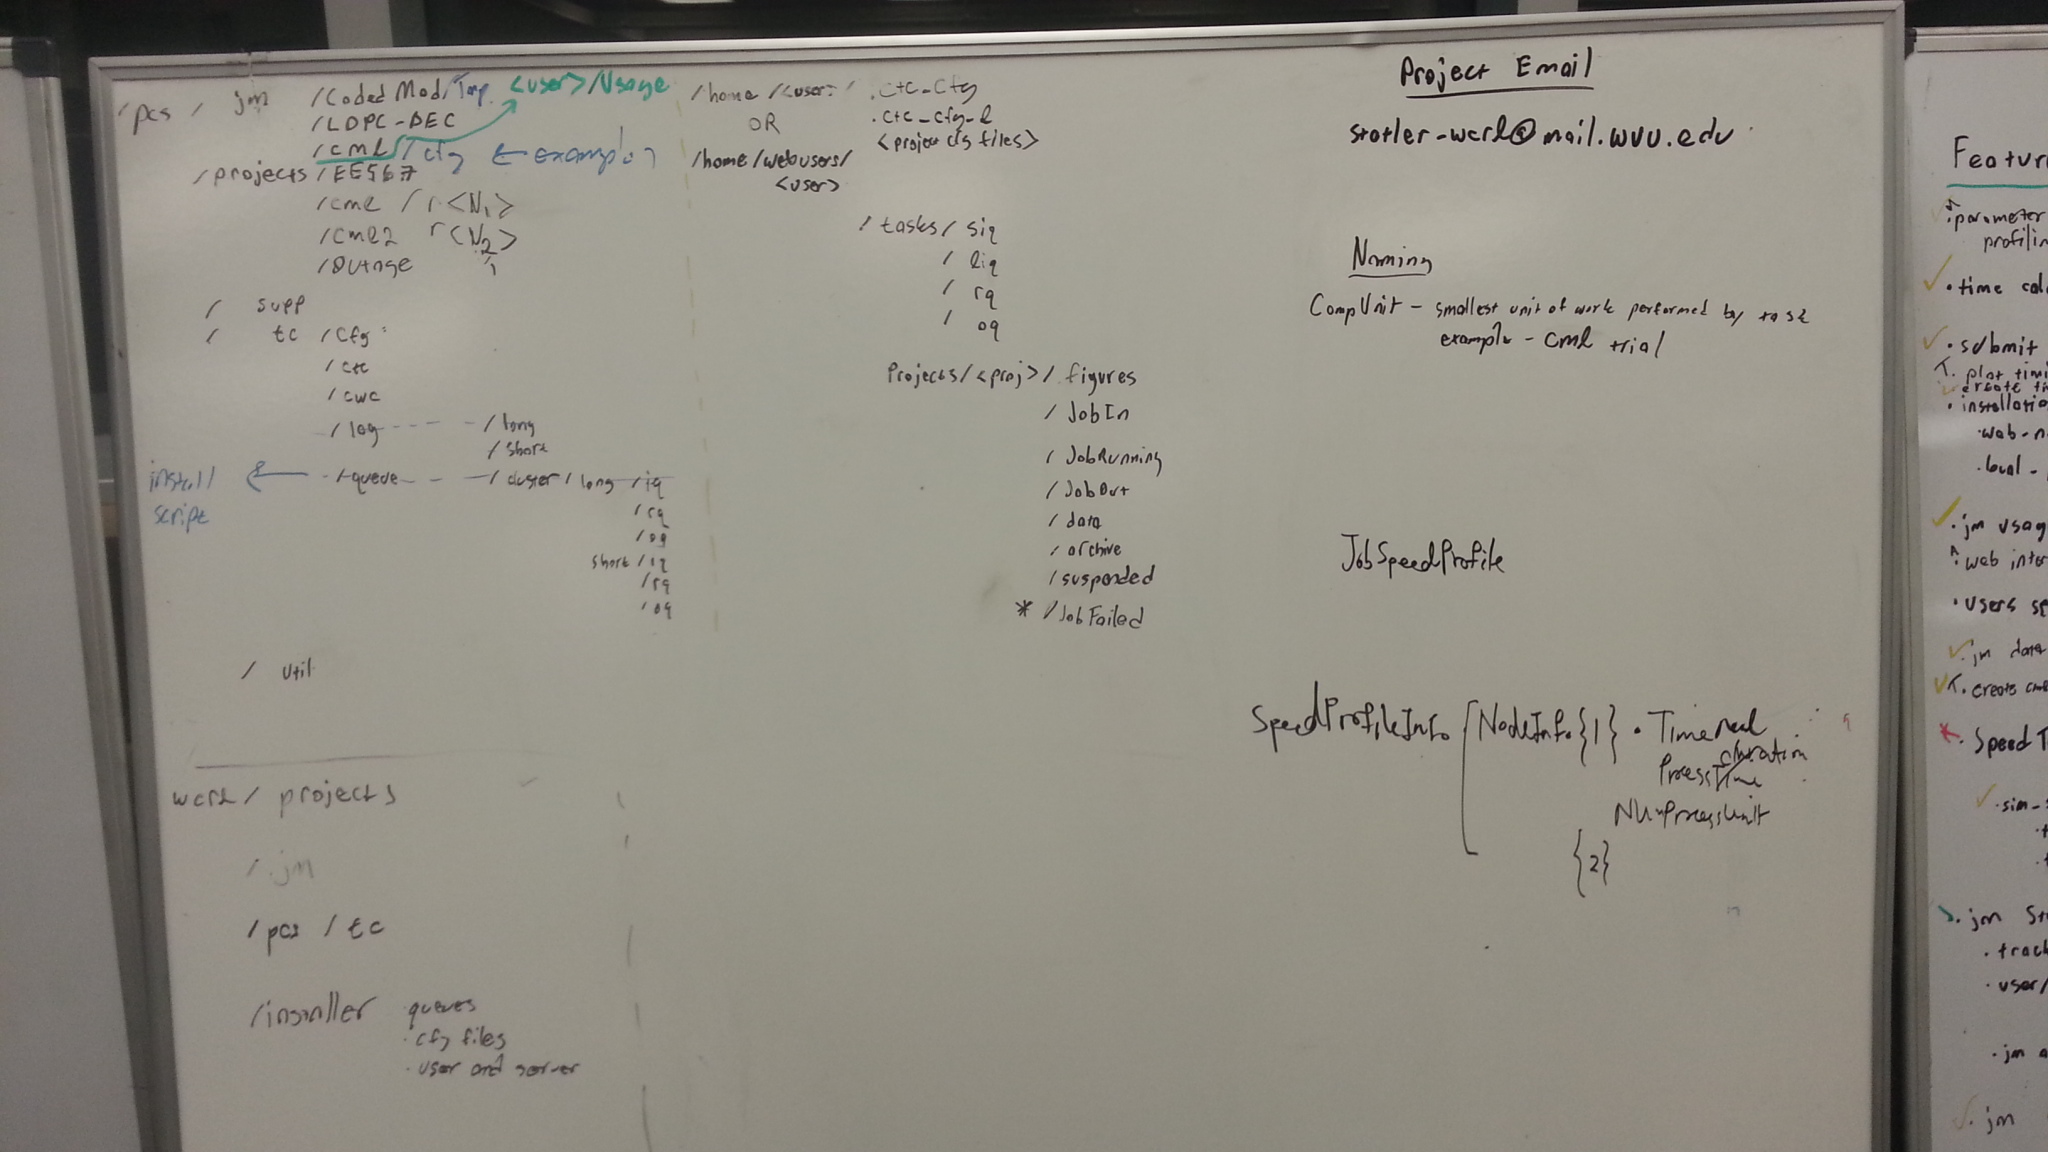 /pcs / jm /Coded Mod/Tmp <user>/Usage
/LDPC-DEC
/cml /cfg ← example
/projects /EE567
/cml / r<N1>
/cml2 r<N2>
/Outage
/ supp
/ tc /cfg
/ctc
/cwc
/log /long
/short
install script ← /queue /cluster /long /iq
/rq
/oq
short /iq
/rq
/oq
/ util
wcrl / projects
/jm
/pcs / tc
/installer queues
· cfg files
· user and server
/home /<user> / .ctc_cfg
OR .ctc_cfg_l
<project cfg files>
/home/webusers/
<user>
/ tasks / siq
/ liq
/ rq
/ oq
Projects/<proj>/ figures
/ JobIn
/ JobRunning
/ JobOut
/ data
/ archive
/suspended
* /JobFailed
Project Email
statler-wcrl@mail.wvu.edu
Naming
CompUnit - smallest unit of work performed by task
example - cml trial
JobSpeedProfile
SpeedProfileInfo [ NodeInfo {1} .
duration
NumProcessUnit
{2}
Featur
· parameter
profilin
· time calc
· submit
plot timi
create ti
· installatio
· web-
· local -
· jm usag
· web inter
· users sp
· jm data
· create cml
· Speed T
· sim_s
· jm Sta
· track
· user/
· jm a
· jm